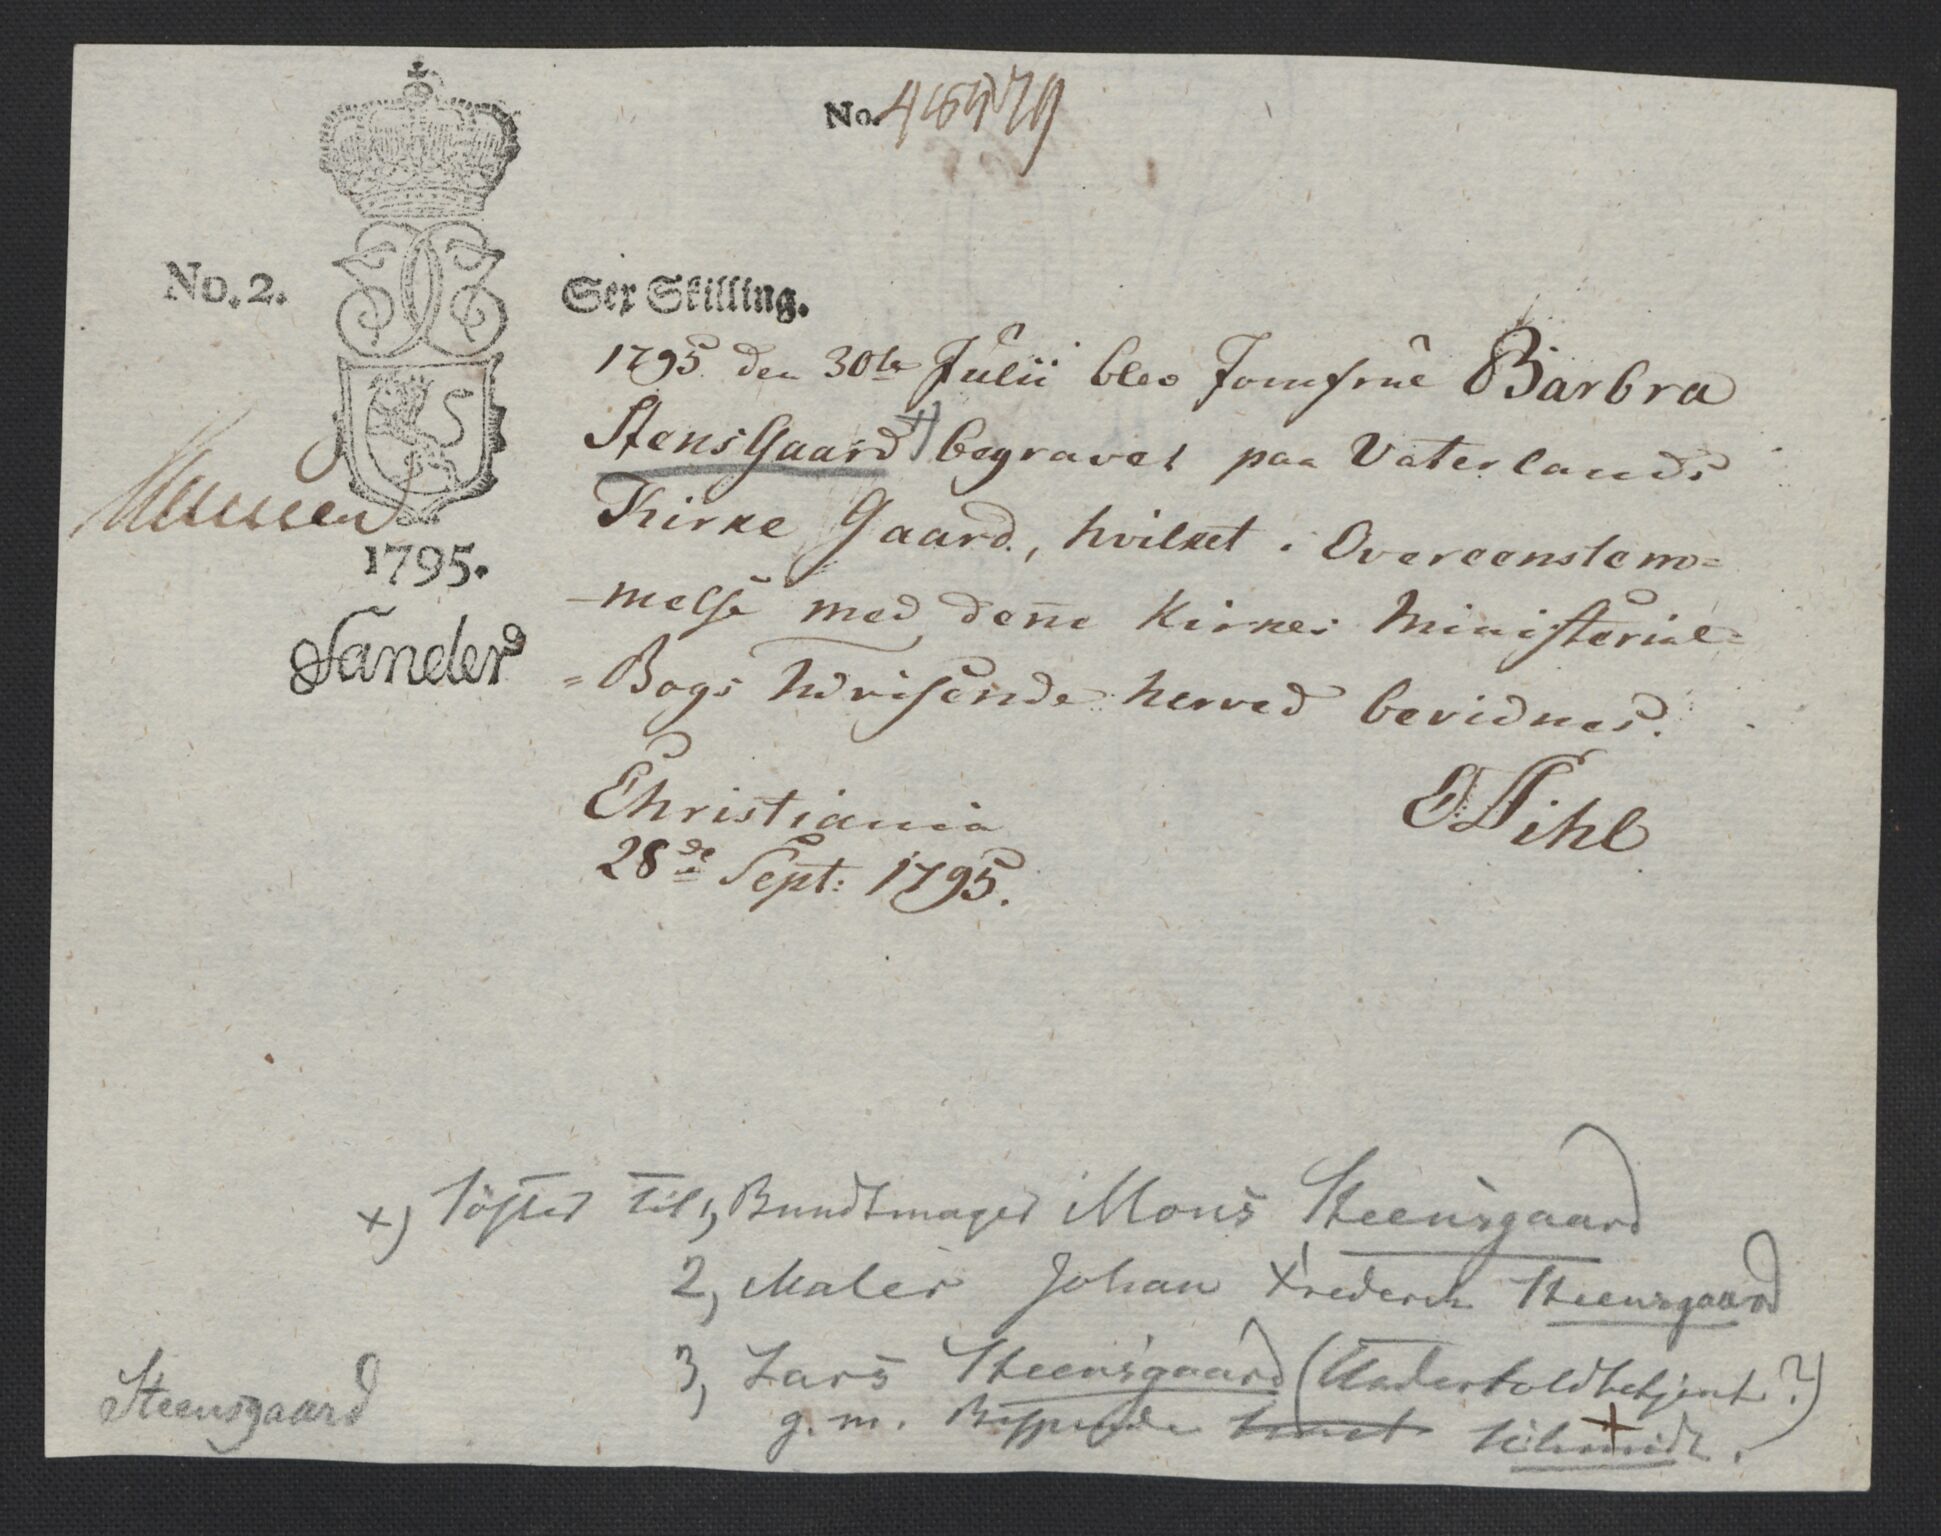 No. 46479
No. 2.
Sex Skilling.
1795 den 30te Julii blev Jomfrue Barbra
StensGaard x) begravet paa Vaterlands
Kirke Gaard, hvilket i Overeenstem=
-melse med denne Kirkes Ministerial=
=Bogs Udvisende herved bevidnes.
Christiania
28de Sept: 1795.
Pihl
1795.
Sander
x) Söster til 1, Bundtmager Mons Steensgaard
2, Maler Johan Frederik Steensgaard
3, Lars Steensgaard (Undertoldbetjent?)
g. m. Schmidt.
Steensgaard